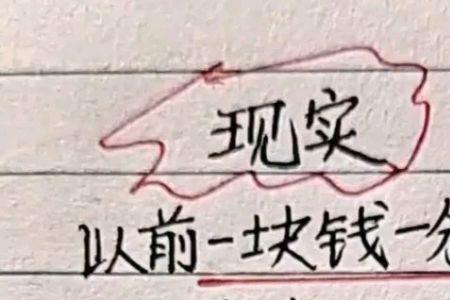 现实
以前一块钱一